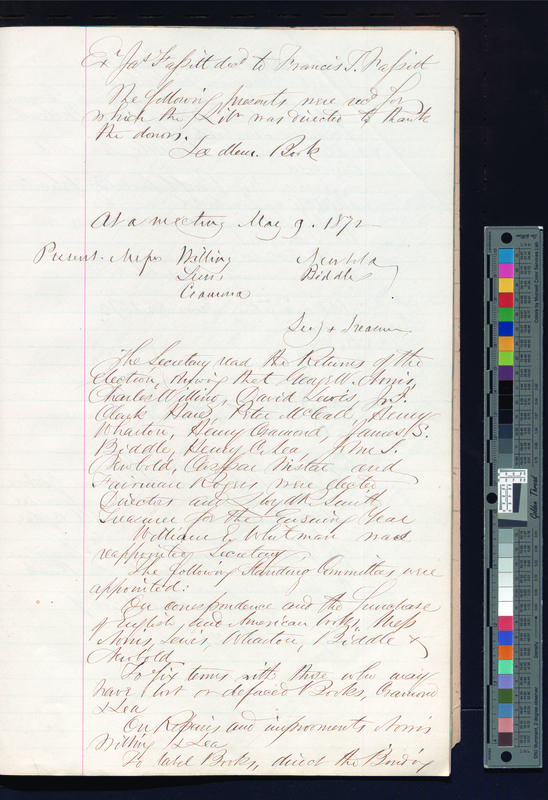 Exr Jas Fassitt decd to Francis T. Fassitt
The following presents were recd for
which the Libn was directed to thank
the donors.
See Mem. Book
At a meeting May 9. 1872
Present. Messrs Willing Newbold
Lewis Biddle
Cramond
Secy & Treasurer
The Secretary read the Returns of the
election, showing that George W. Norris,
Charles Willing, David Lewis, J. I.
Clark Hare, Peter McCall, Henry
Wharton, Henry Cramond, James S.
Biddle, Henry C. Lea John S.
Newbold, Caspar Wistar and
Fairman Rogers were elected
Directors and Lloyd P. Smith
Treasurer for the Ensuing Year
William E Whitman was
reappointed Secretary.
The following Standing Committees were
appointed:
On correspondence and the purchase
of English and American books, Messrs
Norris, Lewis, Wharton, Biddle &
Newbold
To fix terms with those who may
have lost or defaced Books, Cramond
& Lea
On Repairs and improvements Norris
Willing & Lea
To label Books, direct the Binding